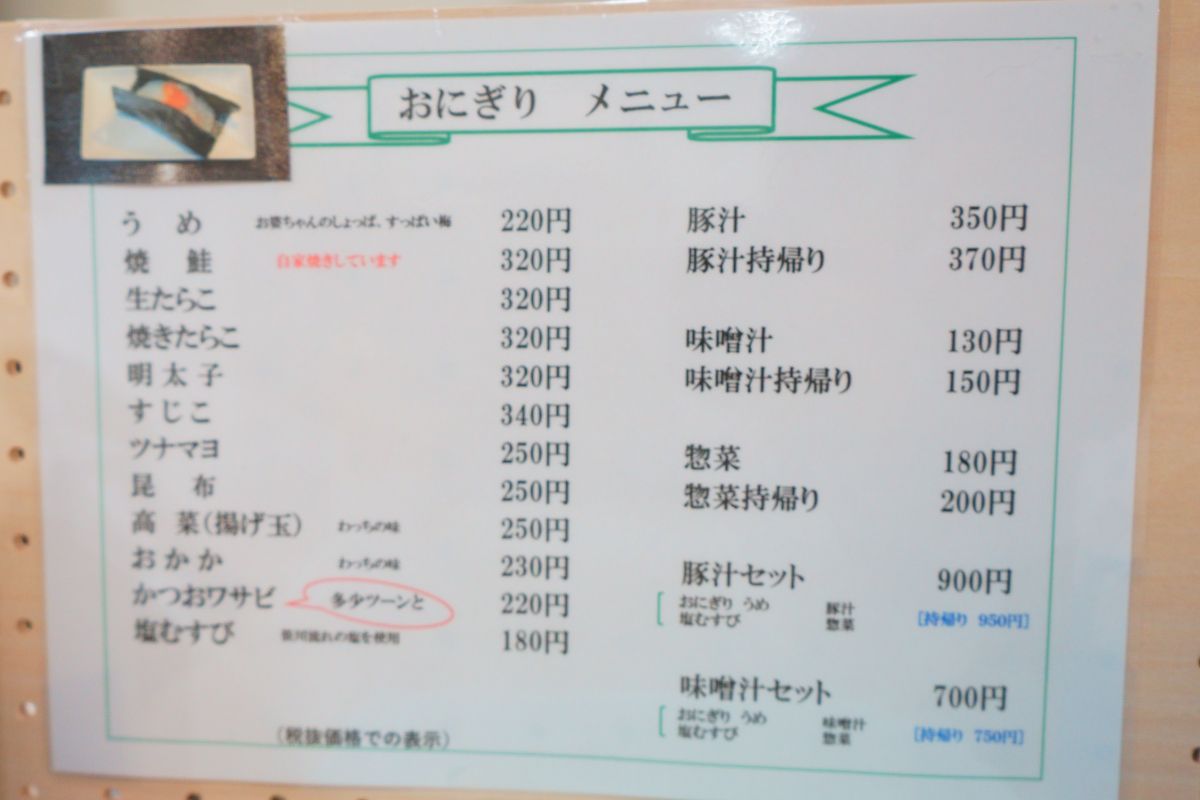 おにぎり メニュー
うめ お婆ちゃんのしょっぱ、すっぱい梅 220円
焼鮭 自家焼きしています 320円
生たらこ 320円
焼きたらこ 320円
明太子 320円
すじこ 340円
ツナマヨ 250円
昆布 250円
高菜(揚げ玉) わっちの味 250円
おかか わっちの味 230円
かつおワサビ 多少ツーンと 220円
塩むすび 笹川流れの塩を使用 180円
(税抜価格での表示)
豚汁 350円
豚汁持帰り 370円
味噌汁 130円
味噌汁持帰り 150円
惣菜 180円
惣菜持帰り 200円
豚汁セット 900円
おにぎり うめ 豚汁
塩むすび 惣菜 [持帰り 950円]
味噌汁セット 700円
おにぎり うめ 味噌汁
塩むすび 惣菜 [持帰り 750円]